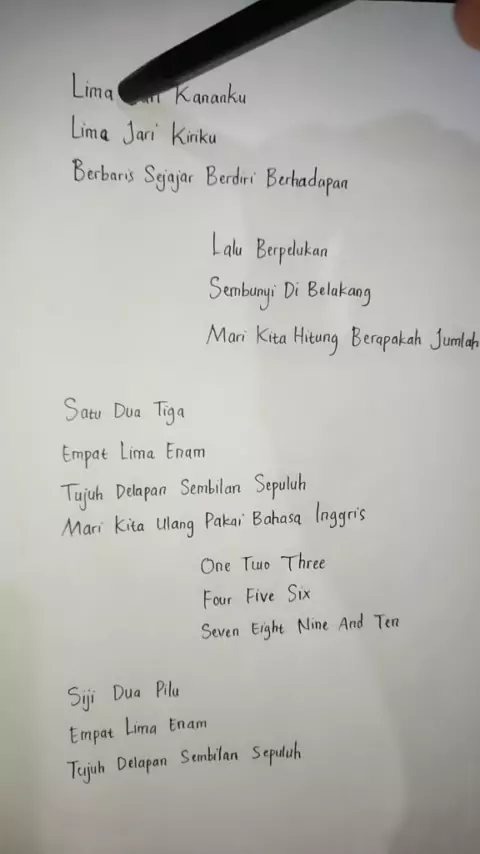 Lima Kananku
Lima Jari Kiriku
Berbaris Sejajar Berdiri Berhadapan
Lalu Berpelukan
Sembunyi Di Belakang
Mari Kita Hitung Berapakah Jumlah
Satu Dua Tiga
Empat Lima Enam
Tujuh Delapan Sembilan Sepuluh
Mari Kita Ulang Pakai Bahasa Inggris
One Two Three
Four Five Six
Seven Eight Nine And Ten
Siji Dua Pilu
Empat Lima Enam
Tujuh Delapan Sembilan Sepuluh